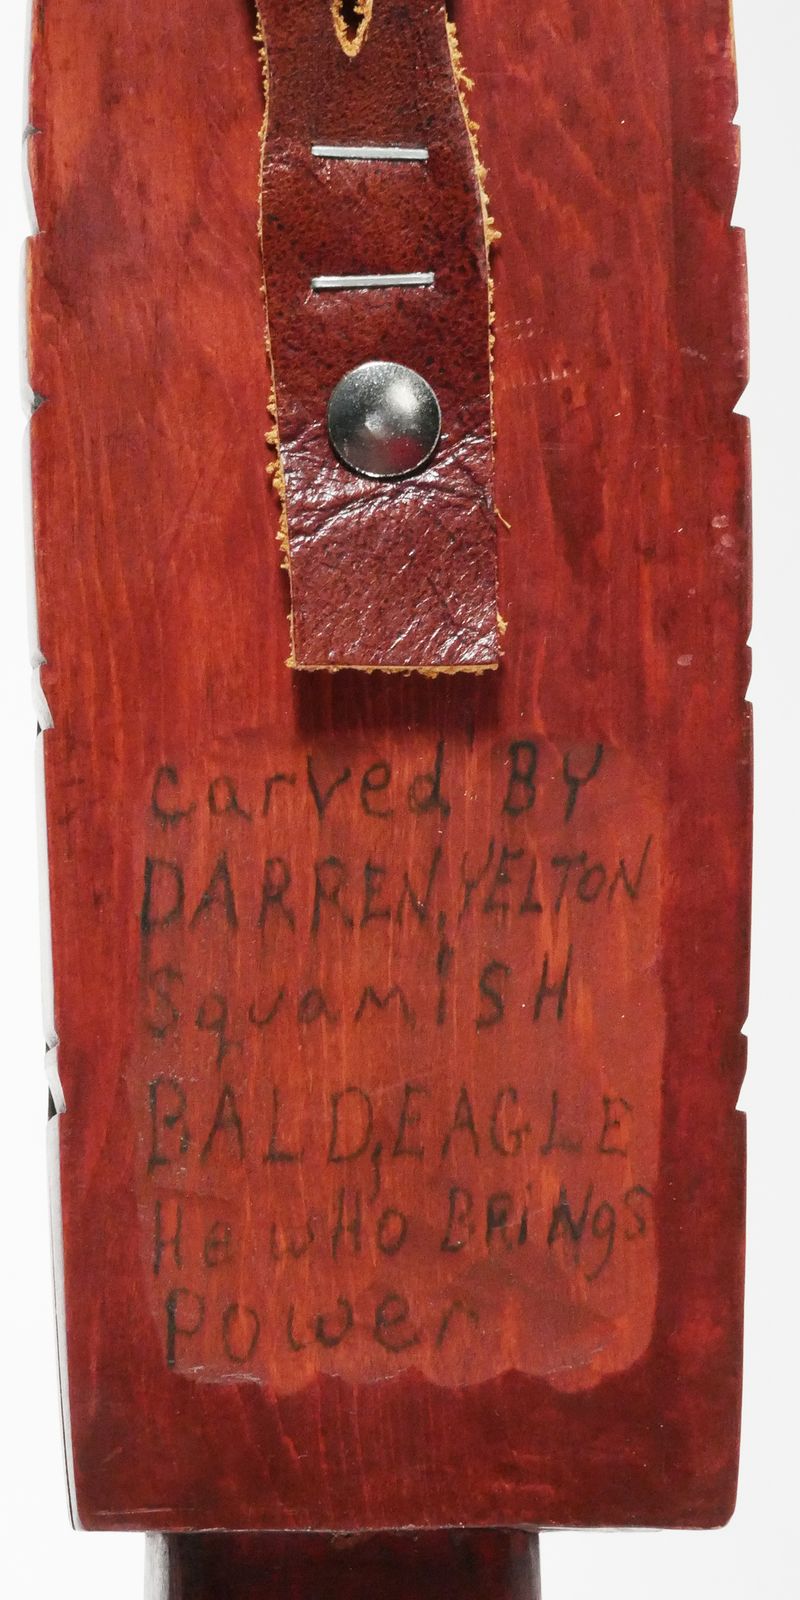 carved BY
DARREN, YELTON
SquamISH
BALD, EAGLE
He wHo BRiNgS
Power